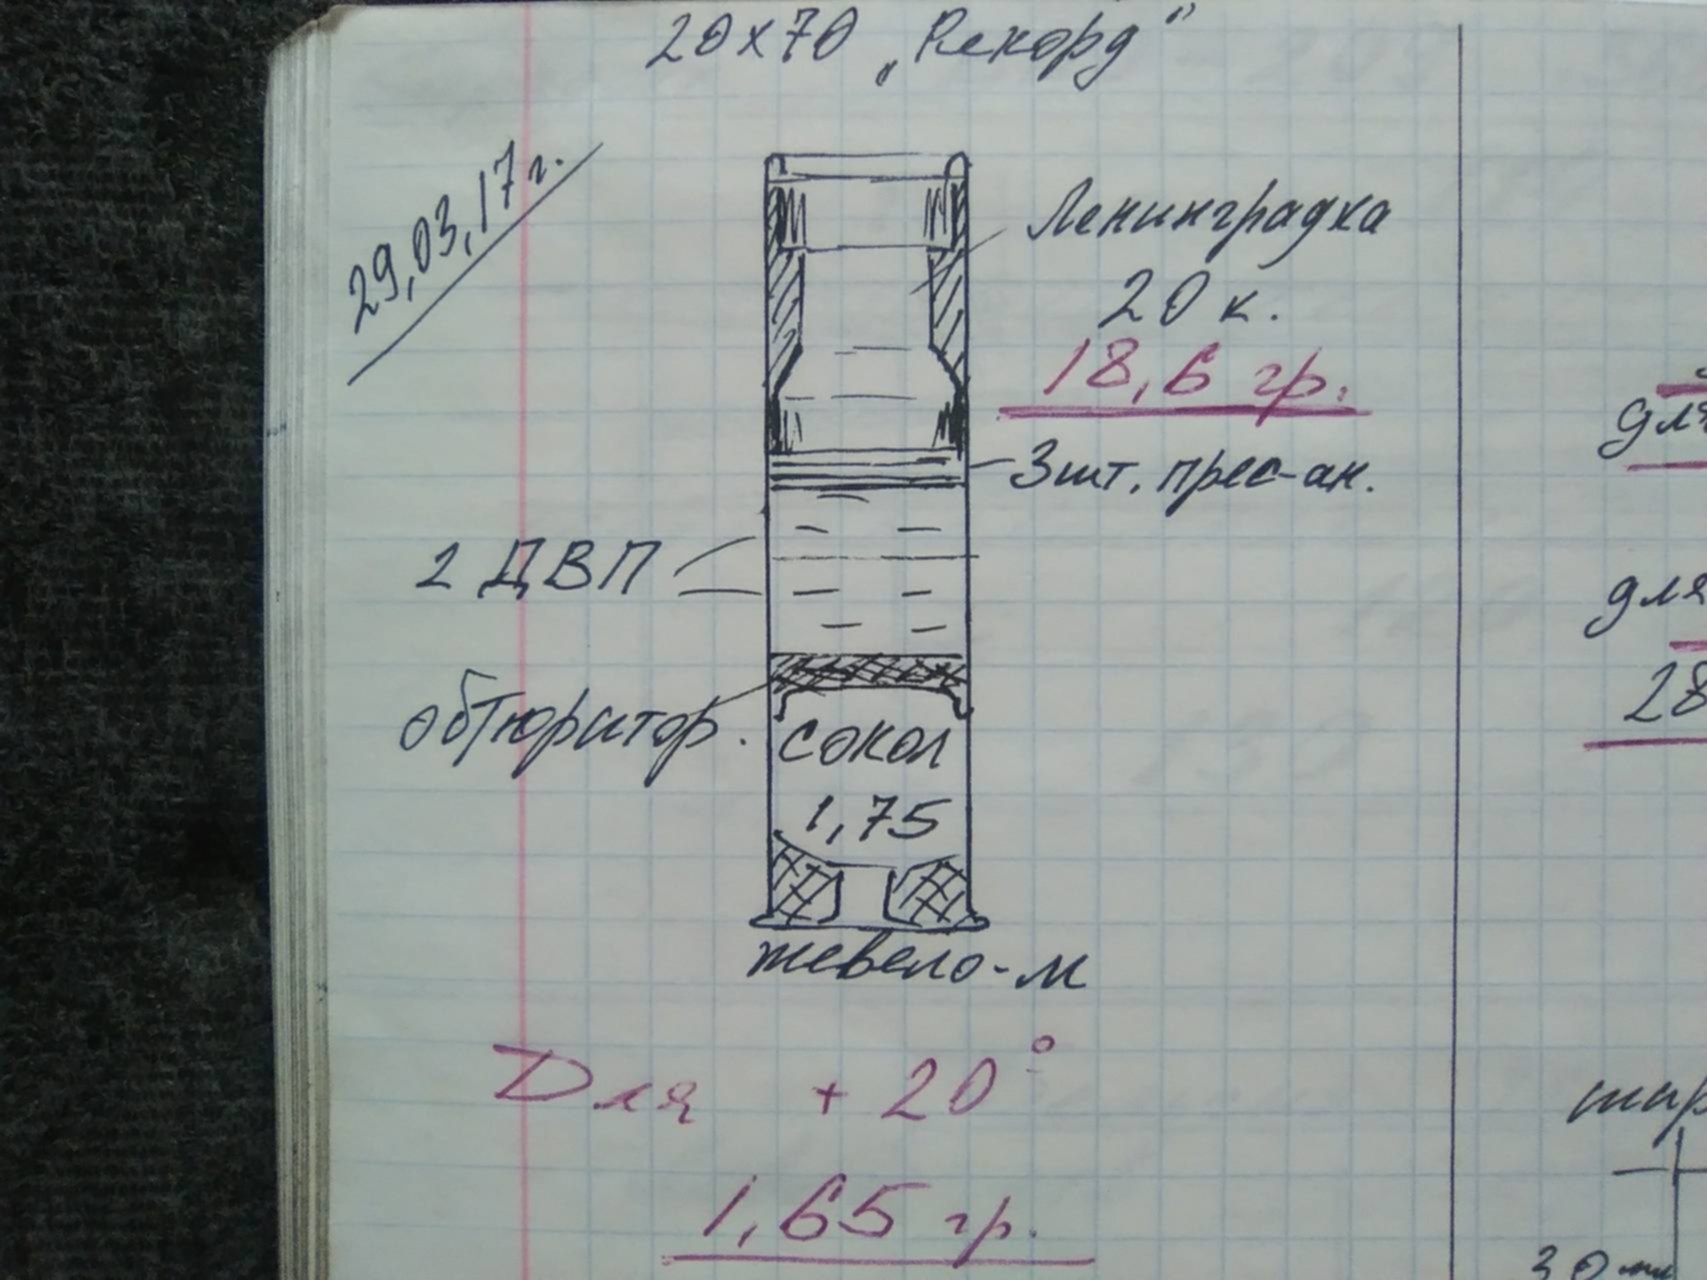 20х70 „Рекорд"
29,03,17г.
Ленинградка
20 к.
18,6 гр.
3шт. прес-ак.
2 ДВП
обтюратор.
сокол
1,75
жевело-м
Для + 20°
1,65 гр.
для
28
30